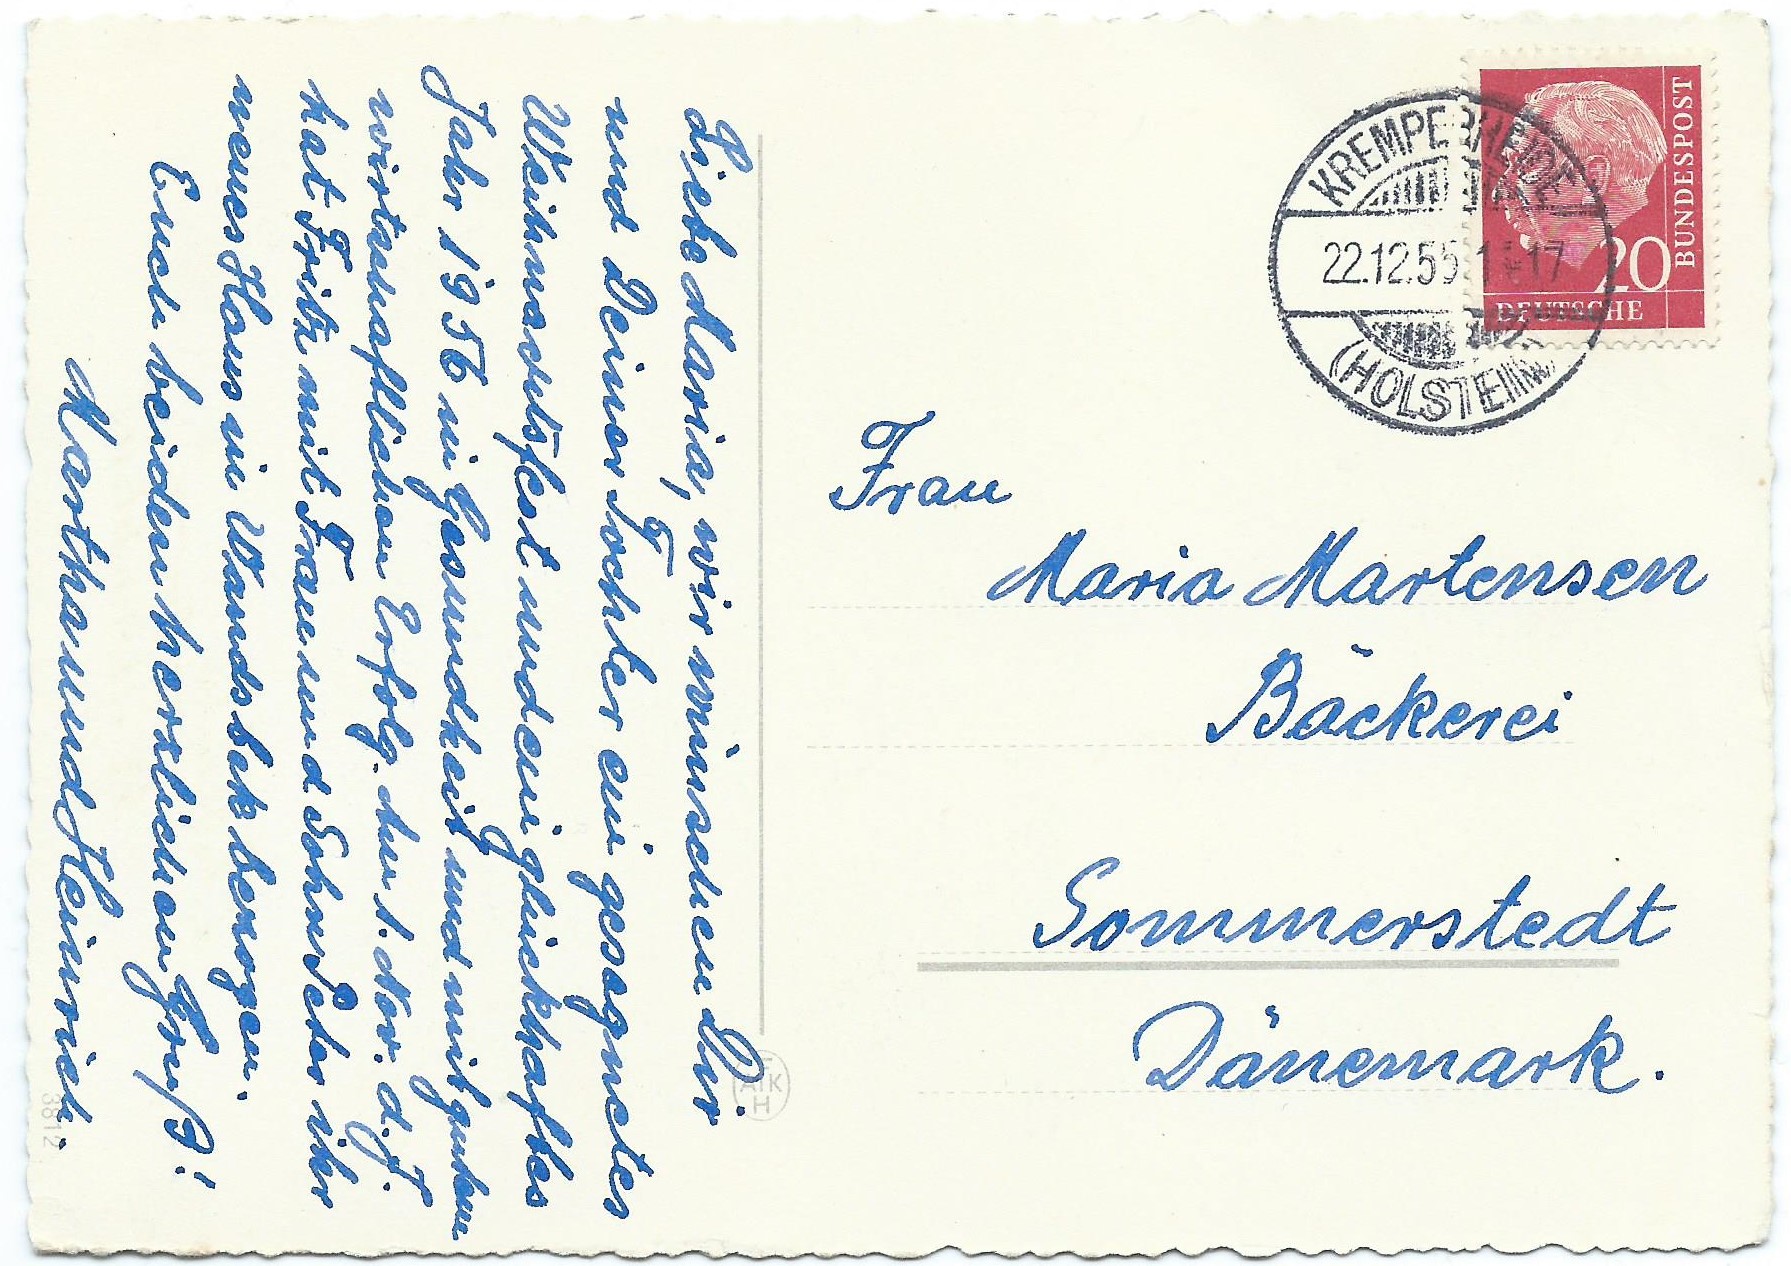 Liebe Maria, wir wünschen Dir
und Deiner Tochter ein gesegnetes
Weihnachtsfest und ein glückhaftes
Jahr 1956 in Gesundheit und mit gutem
wirtschaftlichen Erfolg. Am 1. Nov. d. J.
hat Fritz mit Frau und Sohn Peter ihr
neues Haus in Wandsbek bezogen.
Euch beiden herzlichen Gruß!
Martha und Heinrich.
KREMPERHEIDE
22.12.55
17
(HOLSTEIN)
20
DEUTSCHE
BUNDESPOST
Frau
Maria Martensen
Bäckerei
Sommerstedt
Dänemark.
AFK
H
3812